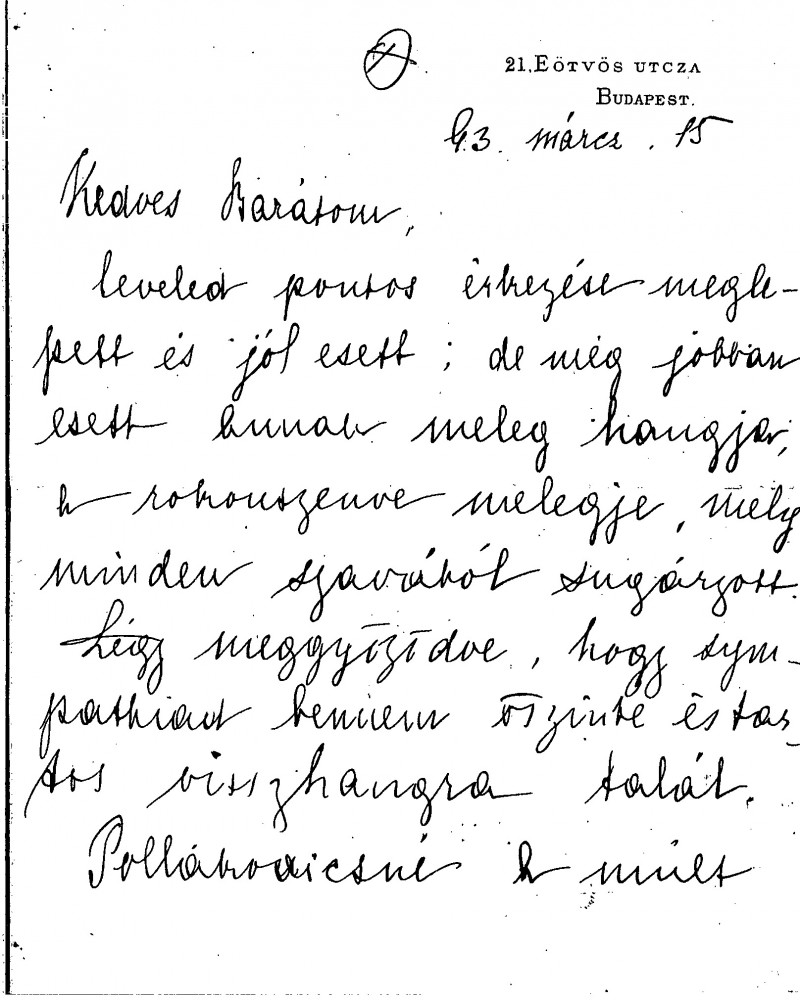 21, EÖTVÖS UTCZA
BUDAPEST.
93. márcz. 15
Kedves Barátom,
leveled pontos érkezése megle-
pett és jól esett; de még jobban
esett annak meleg hangja,
a rokonszenve melegje, mely
minden szavából sugárzott.
Légy meggyőződve, hogy sym-
pathiad bennem őszinte és tar-
tós visszhangra talál.
a múlt